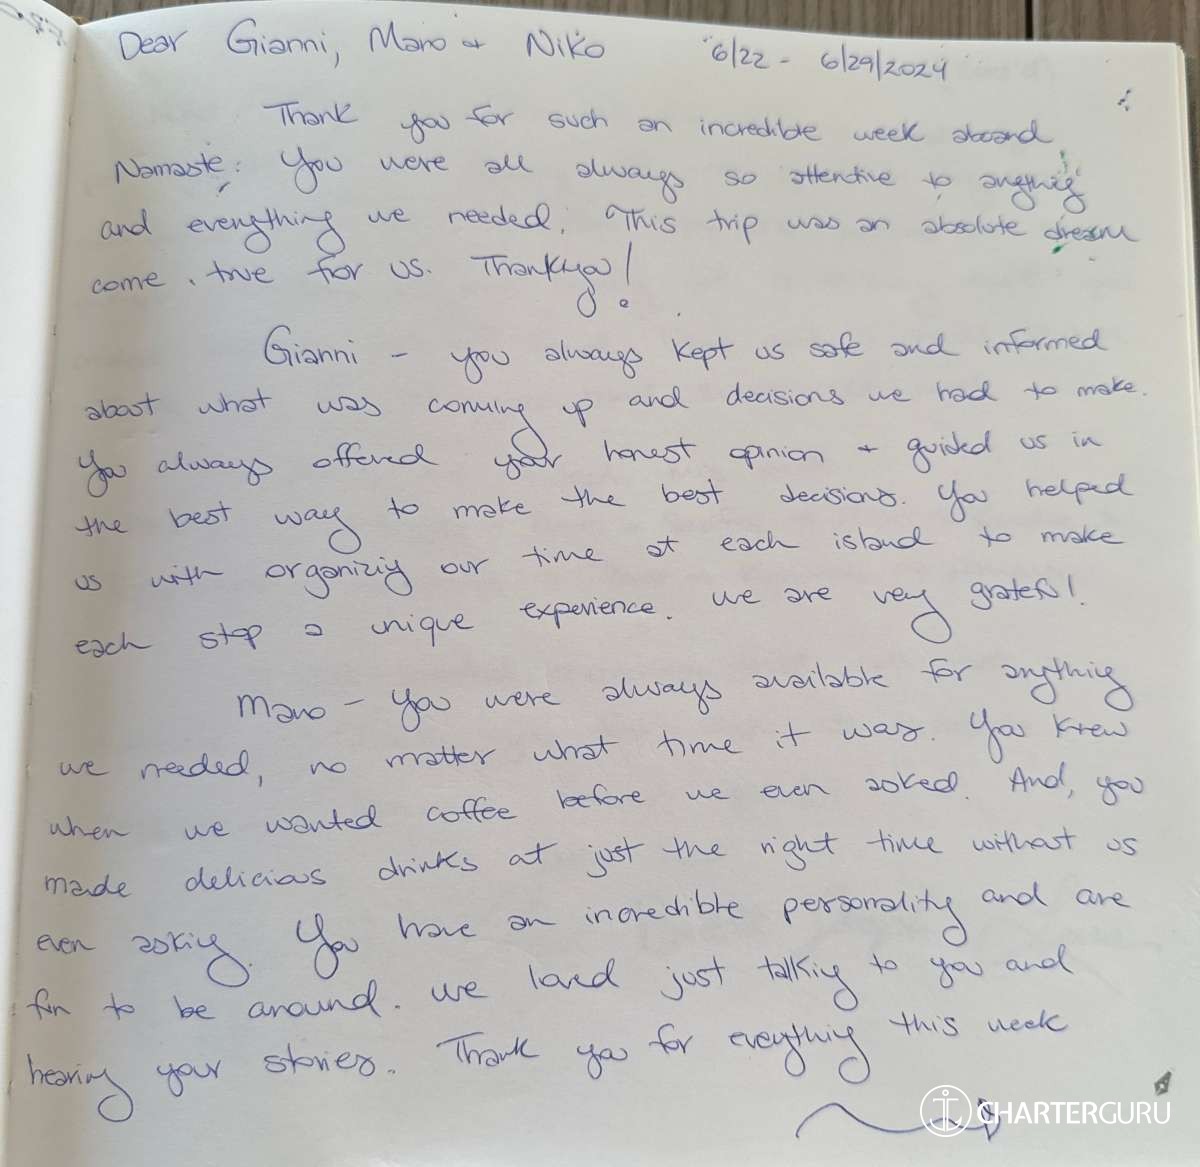 Dear Gianni, Mano + Niko 6/22 - 6/29/2024
Thank you for such an incredible week aboard
Namaste. You were all always so attentive to anything
and everything we needed. This trip was an absolute dream
come true for us. Thankyou!
Gianni - you always kept us safe and informed
about what was coming up and decisions we had to make.
You always offered your honest opinion + guided us in
the best way to make the best decisions. You helped
us with organizing our time at each island to make
each stop a unique experience. We are very grateful!
Mano - You were always available for anything
we needed, no matter what time it was. You knew
when we wanted coffee before we even asked. And, you
made delicious drinks at just the right time without us
even asking. You have an incredible personality and are
fun to be around. We loved just talking to you and
hearing your stories. Thank you for everything this week
CHARTERGURU